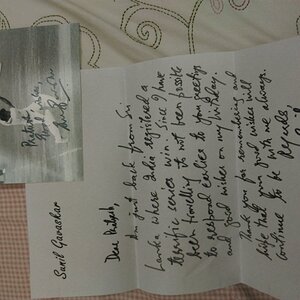 Sunil Gavaskar
Dear Prakash,
Am just back from Sri
Lanka where India registered a
terrific series win. Since I have
been travelling its not been possible
to respond earlier to your greetings
and good wishes on my birthday.
Thank you for remembering and
hope that your good wishes will
continue to be with me always.
Regards